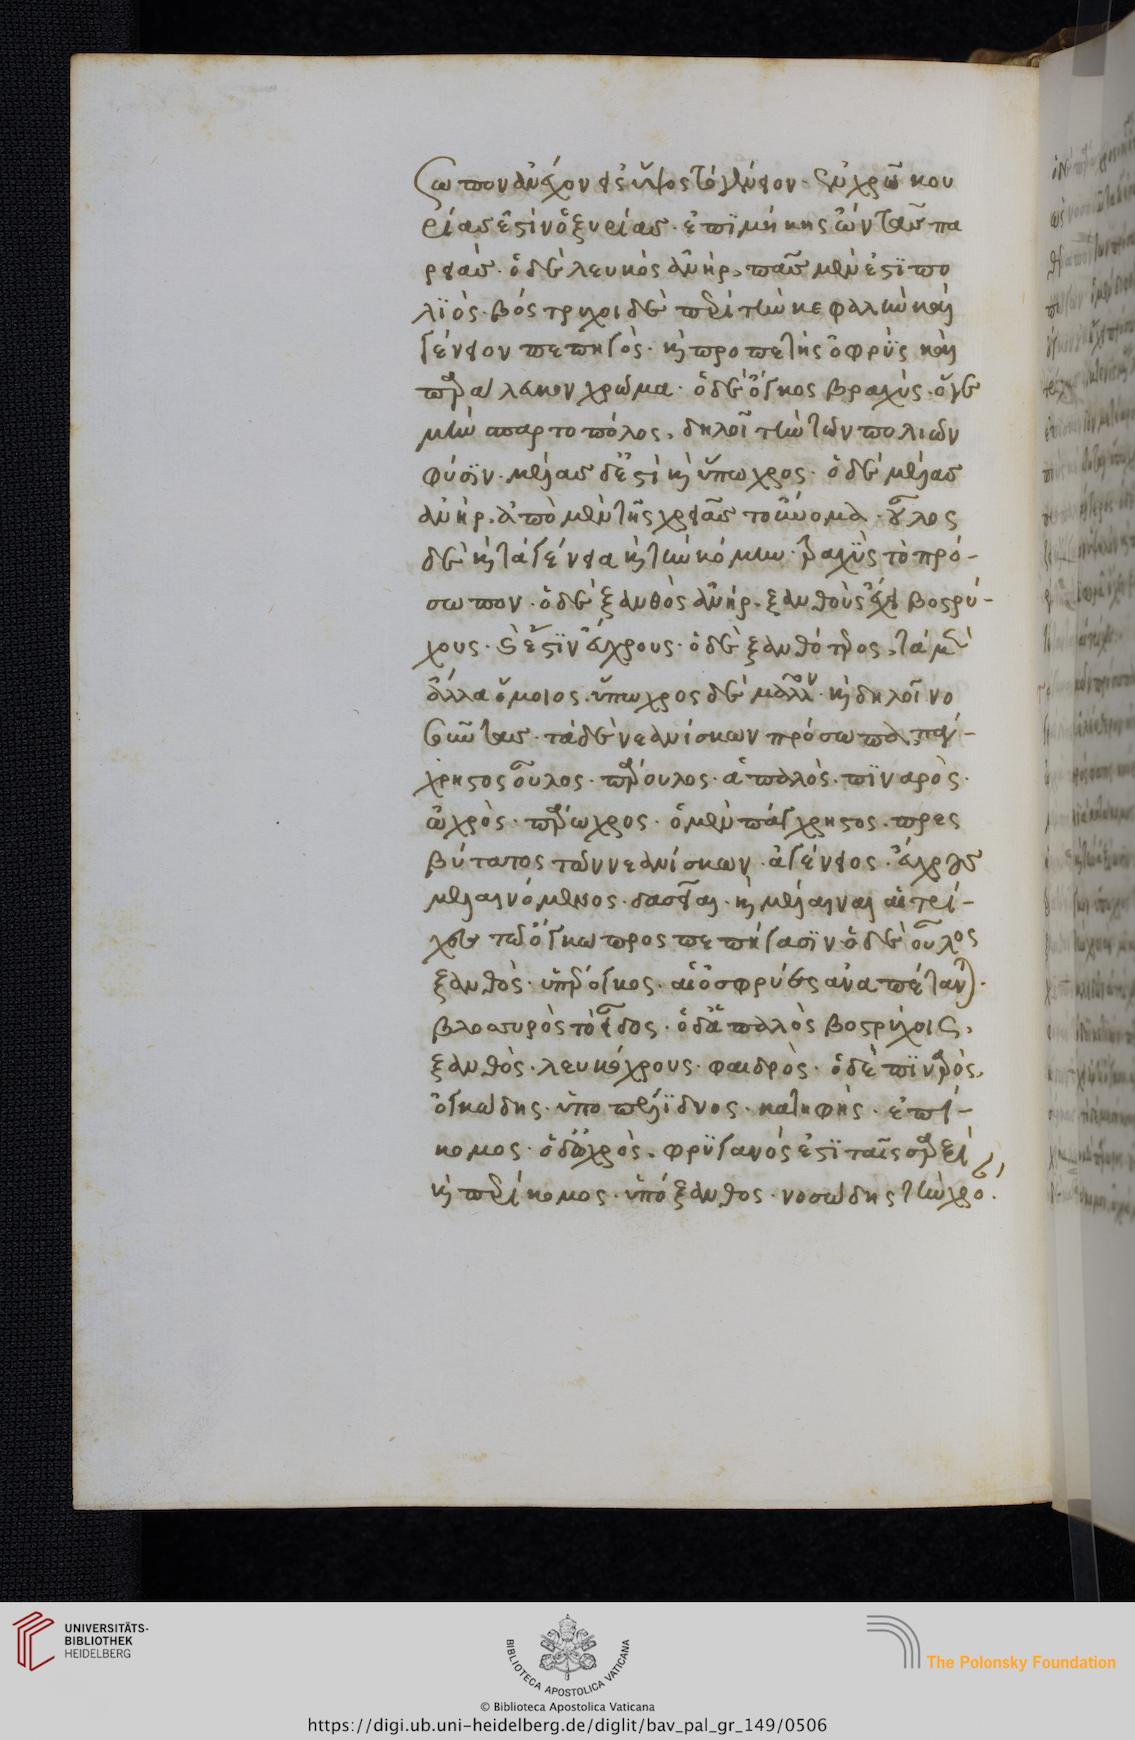 σωπον ἀνάσχον εἰς ὕψος τὸ λάμβδον
ρίας ἐστὶν ὁ ξυρίας. ἐπιμήκης ὢν τὰς πα
ρειάς. ὁ δὲ λευκὸς ἀνήρ, πᾶς μέν ἐστι πο
λιός. βοστρύχοι δὲ περὶ τὴν κεφαλὴν καὶ
γένειον πεπηγός. καὶ προπετὴς ὀφρὺς καὶ
χρῶμα. ὁ δὲ ὄγκος βραχύς. ὅγε
μὴν σπαρτοπόλιος, δηλοῖ τὴν τῶν πολιῶν
φύσιν. μέλας δέ ἐστι καὶ ὕπωχρος. ὁ δὲ μέλας
ἀνήρ. ἀπὸ μὲν τῆς χρείας τοὔνομα. οὖλος
δὲ καὶ τὰ γένεια καὶ τὴν κόμην. τραχὺς τὸ πρό-
σωπον. ὁ δὲ ξανθὸς ἀνήρ. ξανθοὺς ἔχει βοστρύ-
χους. ὁ δὲ ξανθότερος, τὰ μὲν
ἄλλα ὅμοιος. ὕπωχρος δὲ μᾶλλον. καὶ δηλοῖ νο
σοῦντας. τὰ δὲ νεανίσκων πρόσωπα, πάγ-
χρηστος οὖλος. πάρουλος. ἁπαλός. πιναρός.
ὠχρός. πάρωχρος. ὁ μὲν πάγχρηστος. πρεσ
βύτατος τῶν νεανίσκων. ἀγένειος. εὔχρως
μελαινόμενος. δασεῖαι. καὶ μέλαιναι αἱ τρί-
χες πεπήγασιν. ὁ δὲ οὖλος
ξανθός. ὑπέρογκος. αἱ ὀφρύες ἀνατέτανται.
βλοσυρὸς τὸ εἶδος. ὁ δὲ ἁπαλὸς βοστρύχοις,
ξανθός. λευκόχρους. φαιδρός. ὁ δὲ πιναρός,
ὀγκώδης. ὑποπέλιδνος. κατηφής. ἐπί-
κομος. ὁ δὲ ὠχρός. φρυγανός ἐστι ταῖς σαρξὶ
καὶ περίκομος. ὑπόξανθος. νοσώδης τὴν χρό.
UNIVERSITÄTS-
BIBLIOTHEK
HEIDELBERG
BIBLIOTECA APOSTOLICA VATICANA
The Polonsky Foundation
© Biblioteca Apostolica Vaticana
https://digi.ub.uni-heidelberg.de/diglit/bav_pal_gr_149/0506